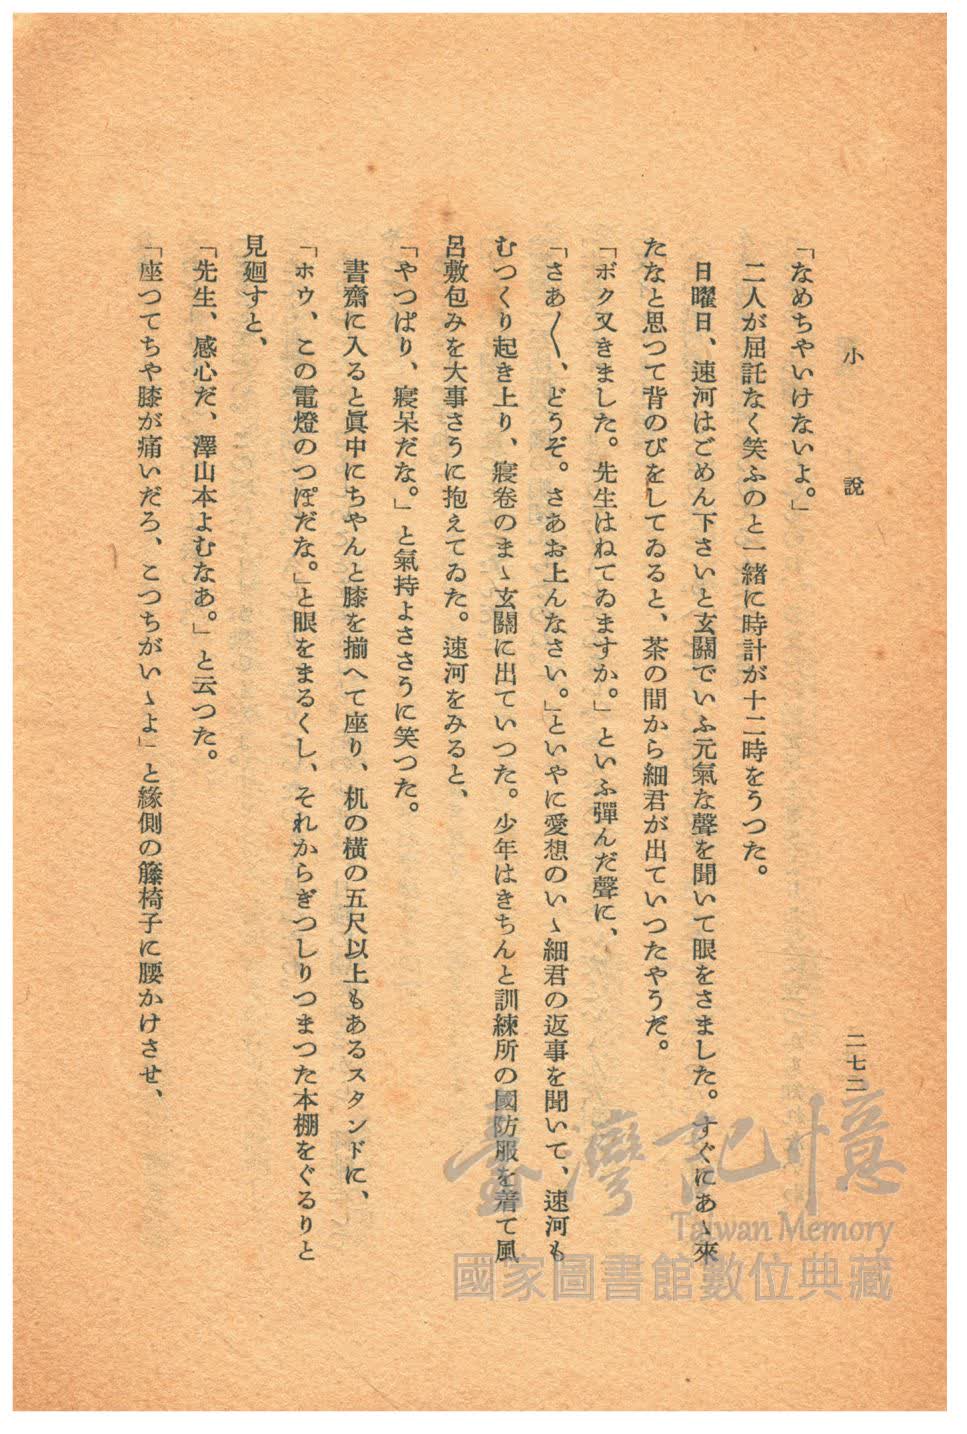 小說
二七二
「なめちやいけないよ。」
二人が屈託なく笑ふのと一緒に時計が十二時をうつた。
日曜日、速河はごめん下さいと玄關でいふ元氣な聲を聞いて眼をさました。すぐにあゝ來
たなと思つて背のびをしてゐると、茶の間から細君が出ていつたやうだ。
「ボク又きました。先生はねてゐますか。」といふ彈んだ聲に、
「さあ〳〵、どうぞ。さあお上んなさい。」といやに愛想のいゝ細君の返事を聞いて、速河も
むつくり起き上り、寢卷のまゝ玄關に出ていつた。少年はきちんと訓練所の國防服を着て風
呂敷包みを大事さうに抱えてゐた。速河をみると、
「やつぱり、寢呆だな。」と氣持よささうに笑つた。
書齋に入ると眞中にちやんと膝を揃へて座り、机の横の五尺以上もあるスタンドに、
「ホウ、この電燈のつぽだな。」と眼をまるくし、それからぎつしりつまつた本棚をぐるりと
見廻すと、
「先生、感心だ、澤山本よむなあ。」と云つた。
「座つてちや膝が痛いだろ、こつちがいゝよ」と緣側の籐椅子に腰かけさせ、
臺灣記憶
Taiwan Memory
國家圖書館數位典藏